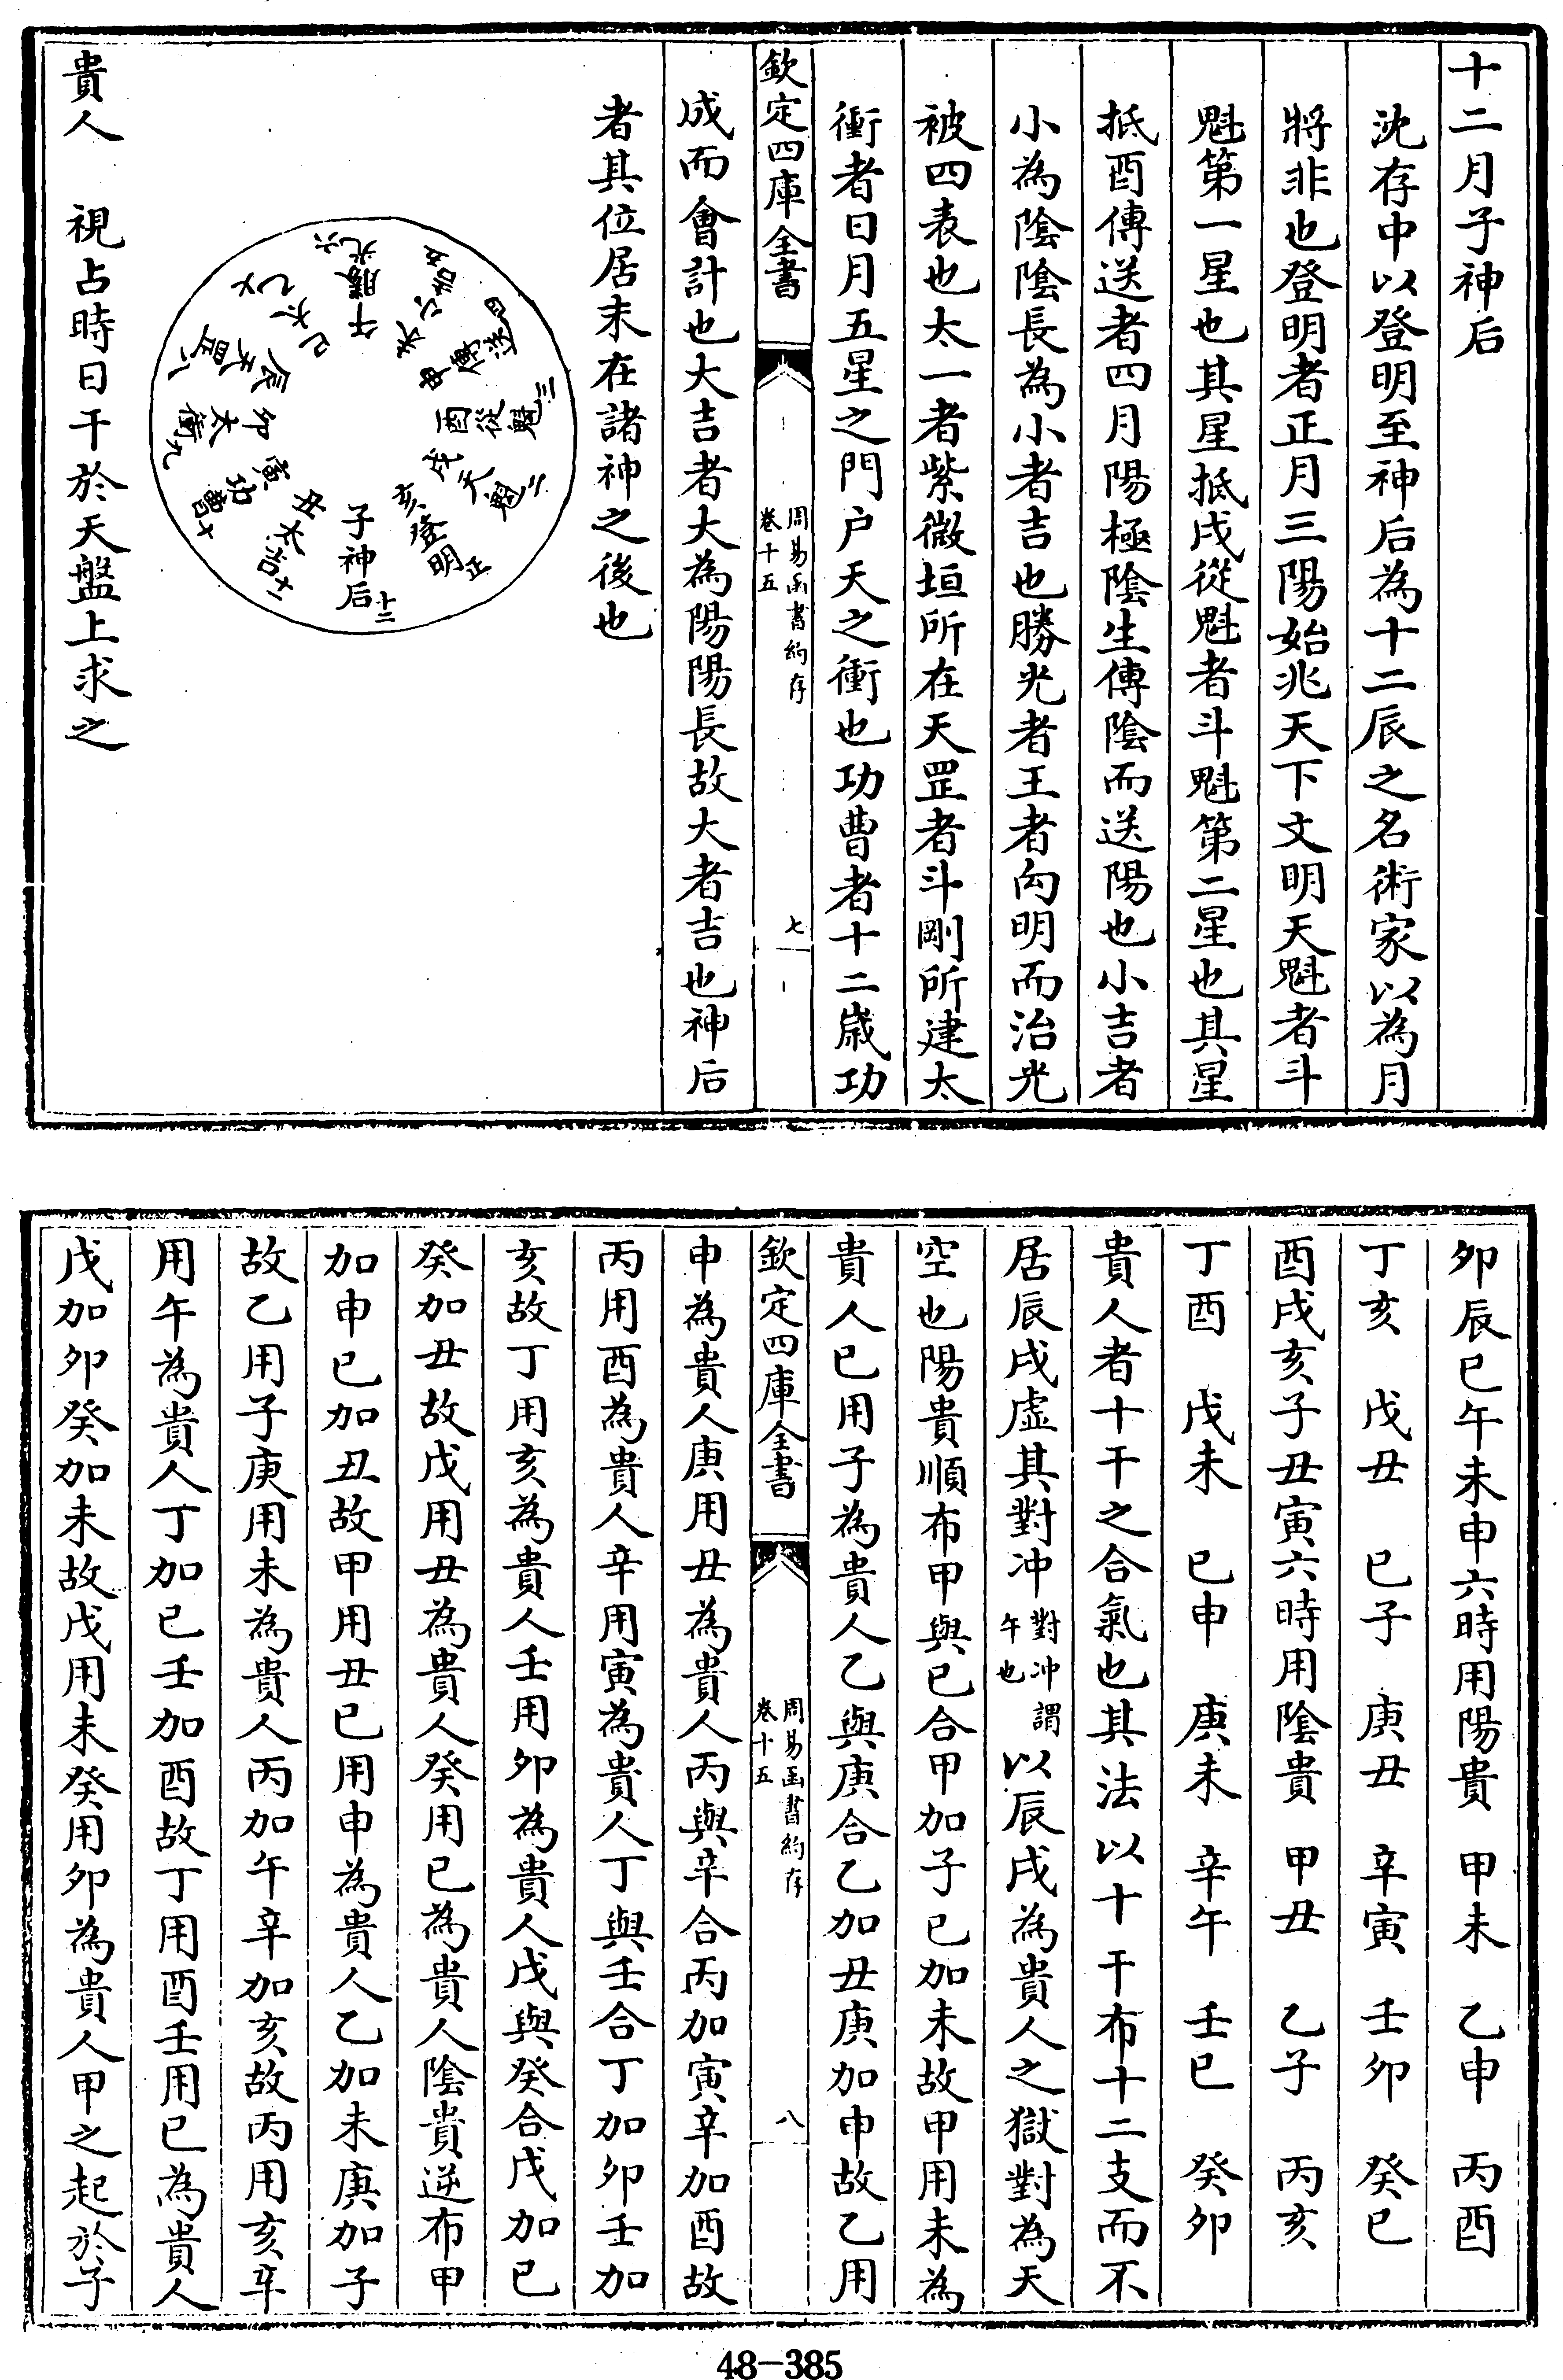 十二月子神后
沈存中以登明至神后為十二辰之名術家以為月
將非也登明者正月三陽始兆天下文明天魁者斗
魁第一星也其星抵戌從魁者斗魁第二星也其星
抵酉傳送者四月陽極陰生傳陰而送陽也小吉者
小為陰陰長為小者吉也勝光者王者向明而治光
被四表也太一者紫微垣所在天罡者斗剛所建太
衝者日月五星之門户天之衝也功曹者十二歲功
欽定四庫全書
周易函書約存
卷十五
七
成而會計也大吉者大為陽陽長故大者吉也神后
者其位居末在諸神之後也
午勝光六
未小吉五
申傳送四
酉從魁三
戌天魁二
亥登明正
子神后十二
丑大吉十一
寅功曹十
卯太衝九
辰天罡八
巳太乙七
貴人　視占時日干於天盤上求之
卯辰巳午未申六時用陽貴　甲未　乙申　丙酉
丁亥　戊丑　已子　庚丑　辛寅　壬卯　癸巳
酉戌亥子丑寅六時用陰貴　甲丑　乙子　丙亥
丁酉　戊未　已申　庚未　辛午　壬巳　癸卯
貴人者十干之合氣也其法以十干布十二支而不
居辰戌虛其對冲對冲謂午也以辰戌為貴人之獄對為天
空也陽貴順布甲與已合甲加子已加未故甲用未為
貴人已用子為貴人乙與庚合乙加丑庚加申故乙用
欽定四庫全書
周易函書約存
卷十五
八
申為貴人庚用丑為貴人丙與辛合丙加寅辛加酉故
丙用酉為貴人辛用寅為貴人丁與壬合丁加卯壬加
亥故丁用亥為貴人壬用卯為貴人戊與癸合戊加巳
癸加丑故戊用丑為貴人癸用巳為貴人陰貴逆布甲
加申已加丑故甲用丑已用申為貴人乙加未庚加子
故乙用子庚用未為貴人丙加午辛加亥故丙用亥辛
用午為貴人丁加巳壬加酉故丁用酉壬用巳為貴人
戊加卯癸加未故戊用未癸用卯為貴人甲之起於子
48-385